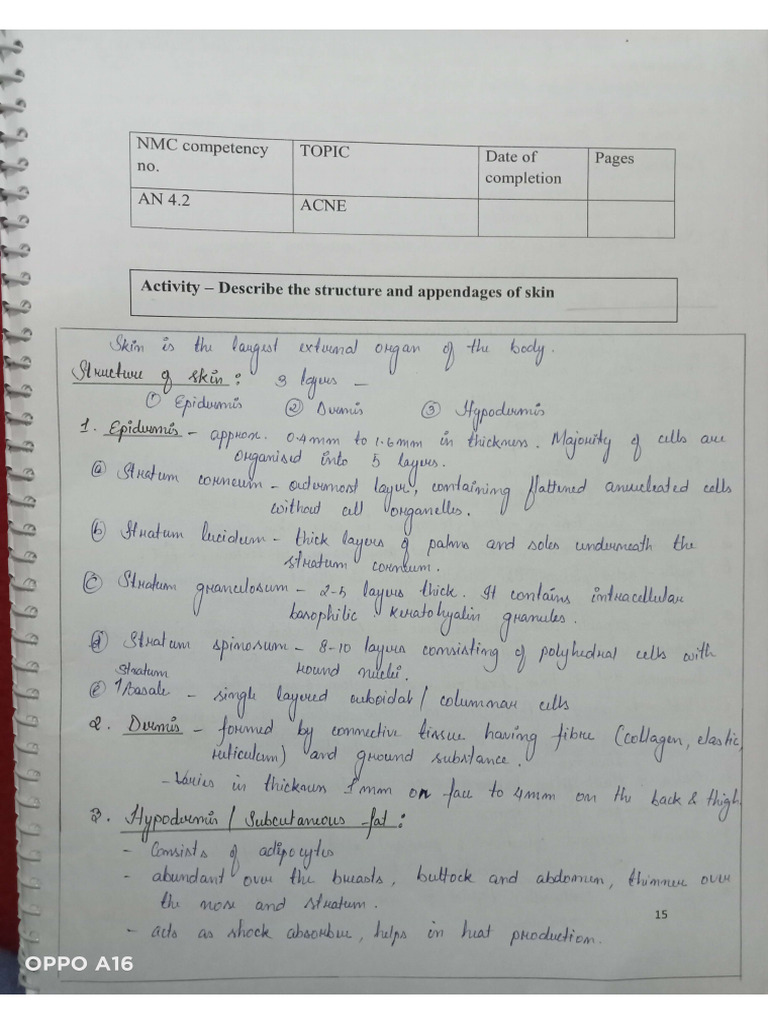 NMC competency no.
TOPIC
Date of completion
Pages
AN 4.2
ACNE
Activity – Describe the structure and appendages of skin
Skin is the largest external organ of the body.
Structure of skin : 3 layers –
① Epidermis ② Dermis ③ Hypodermis
1. Epidermis – approx. 0.4mm to 1.6mm in thickness. Majority of cells are
organised into 5 layers.
ⓐ Stratum corneum – outermost layer, containing flattened anucleated cells
without cell organelles.
ⓑ Stratum lucidum – thick layers of palms and soles underneath the
stratum corneum.
ⓒ Stratum granulosum – 2-5 layers thick. It contains intracellular
basophilic keratohyalin granules.
ⓓ Stratum spinosum – 8-10 layers consisting of polyhedral cells with
round nuclei.
ⓔ Stratum Basale – single layered cuboidal / columnar cells
2. Dermis – formed by connective tissue having fibre (collagen, elastic,
reticulum) and ground substance.
– Varies in thickness 1mm on face to 4mm on the back & thigh.
3. Hypodermis / Subcutaneous fat :
– Consists of adipocytes
– abundant over the breasts, buttock and abdomen, thinner over
the nose and stratum.
– acts as shock absorber, helps in heat production.
15
OPPO A16